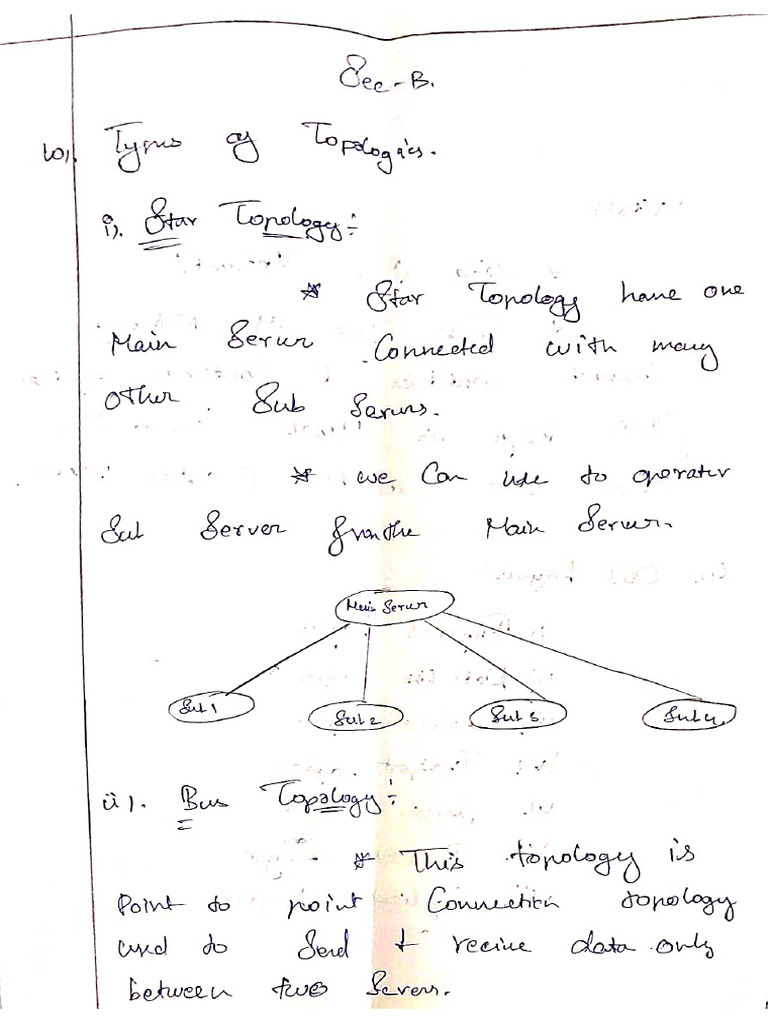 Sec-B.
10). Types of Topologies.
i). Star Topology:-
* Star Topology have one
Main Server Connected with many
other Sub Servers.
* we can use to operater
Sub Server from the Main Server.
Main Server
Sub 1 Sub 2 Sub 3 Sub 4
ii). Bus Topology:-
* This topology is
Point to point Connection topology
used to Send & recive data only
between two Servers.